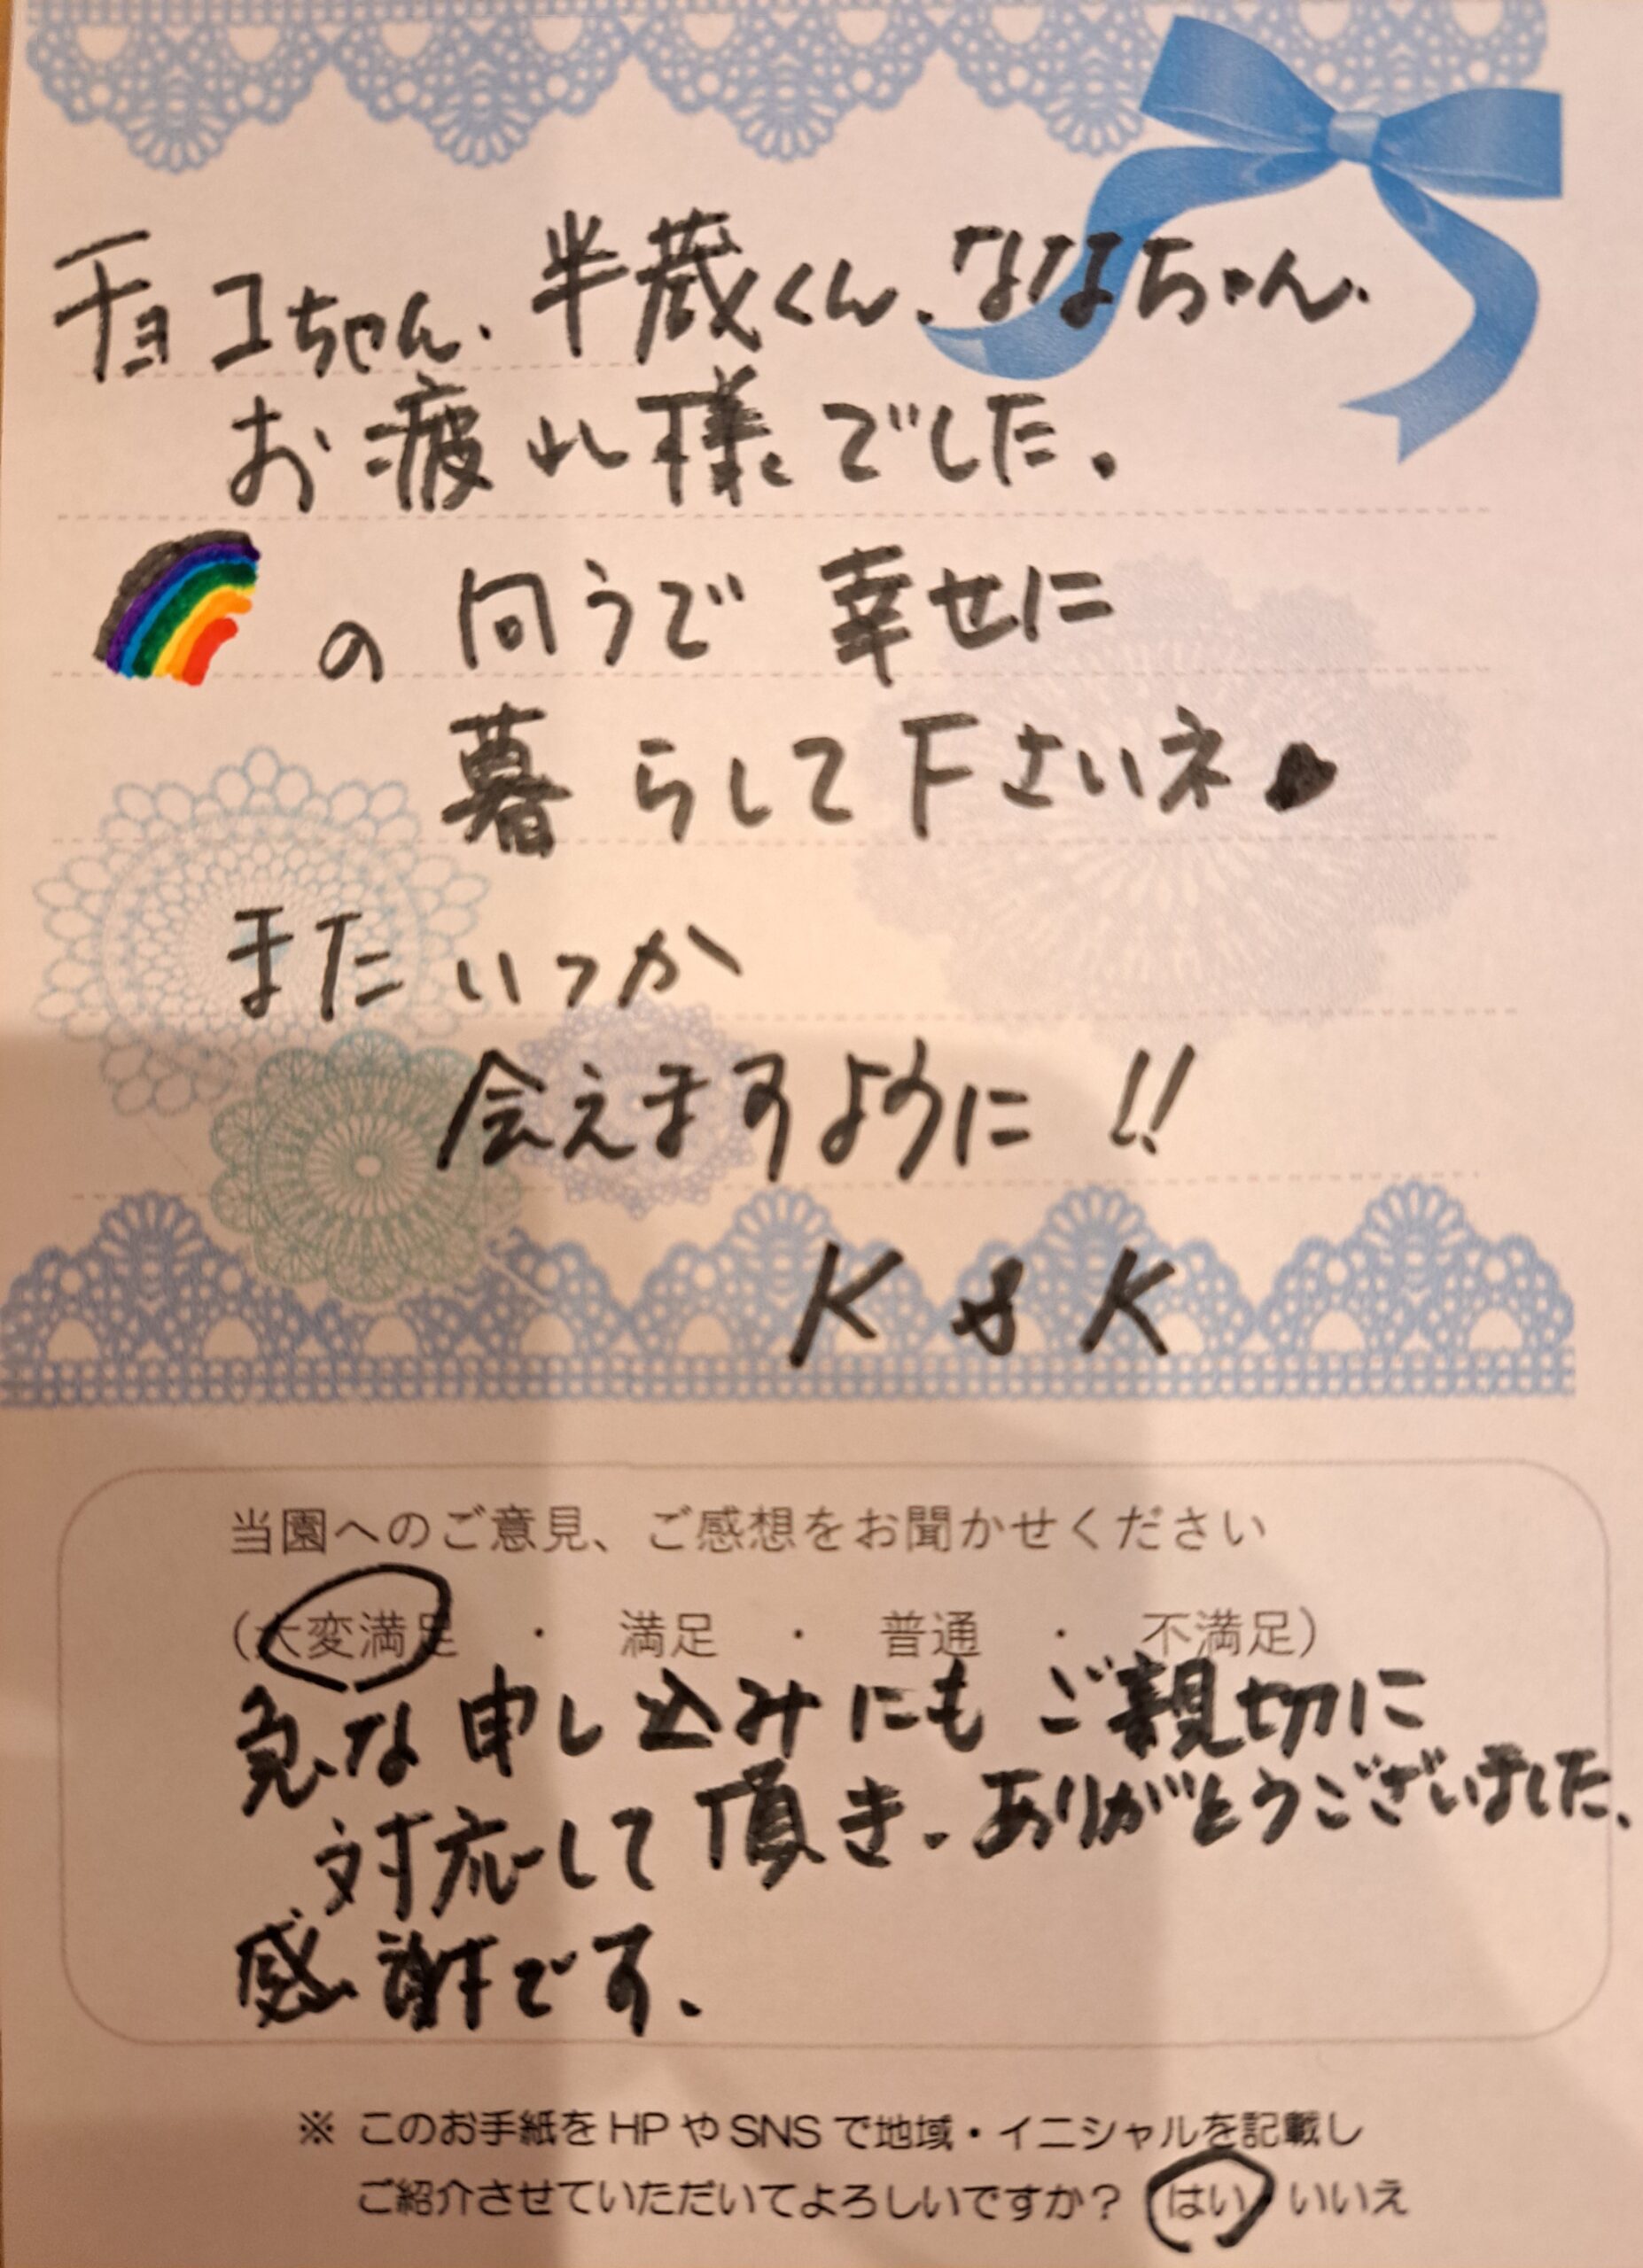 チョコちゃん、半蔵くん、ななちゃん、
お疲れ様でした。
🌈の向うで幸せに
暮らして下さいネ♥
またいつか
会えますように!!
K & K
当園へのご意見、ご感想をお聞かせください
(大変満足 ・ 満足 ・ 普通 ・ 不満足)
急な申し込みにもご親切に
対応して頂き、ありがとうございました、
感謝です、
※ このお手紙をHPやSNSで地域・イニシャルを記載し
ご紹介させていただいてよろしいですか? はい・いいえ